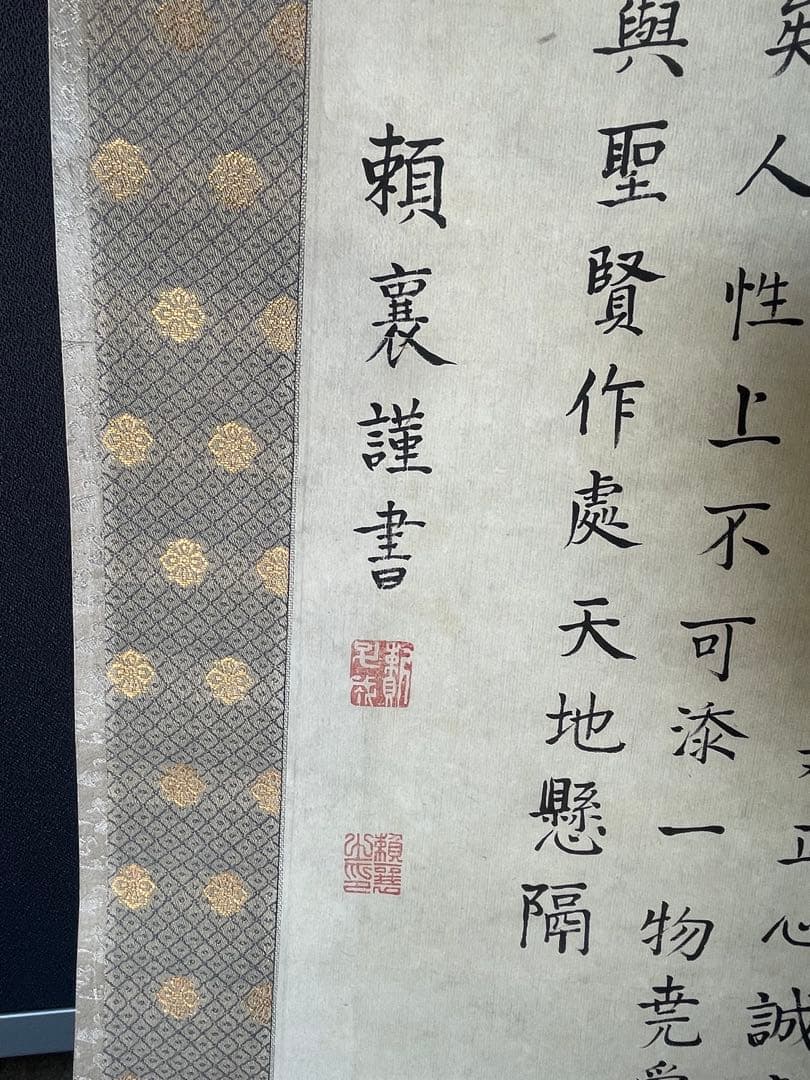 正心誠
矣人性上不可添一物堯
與聖賢作處天地懸隔
賴襄謹書
賴襄之印